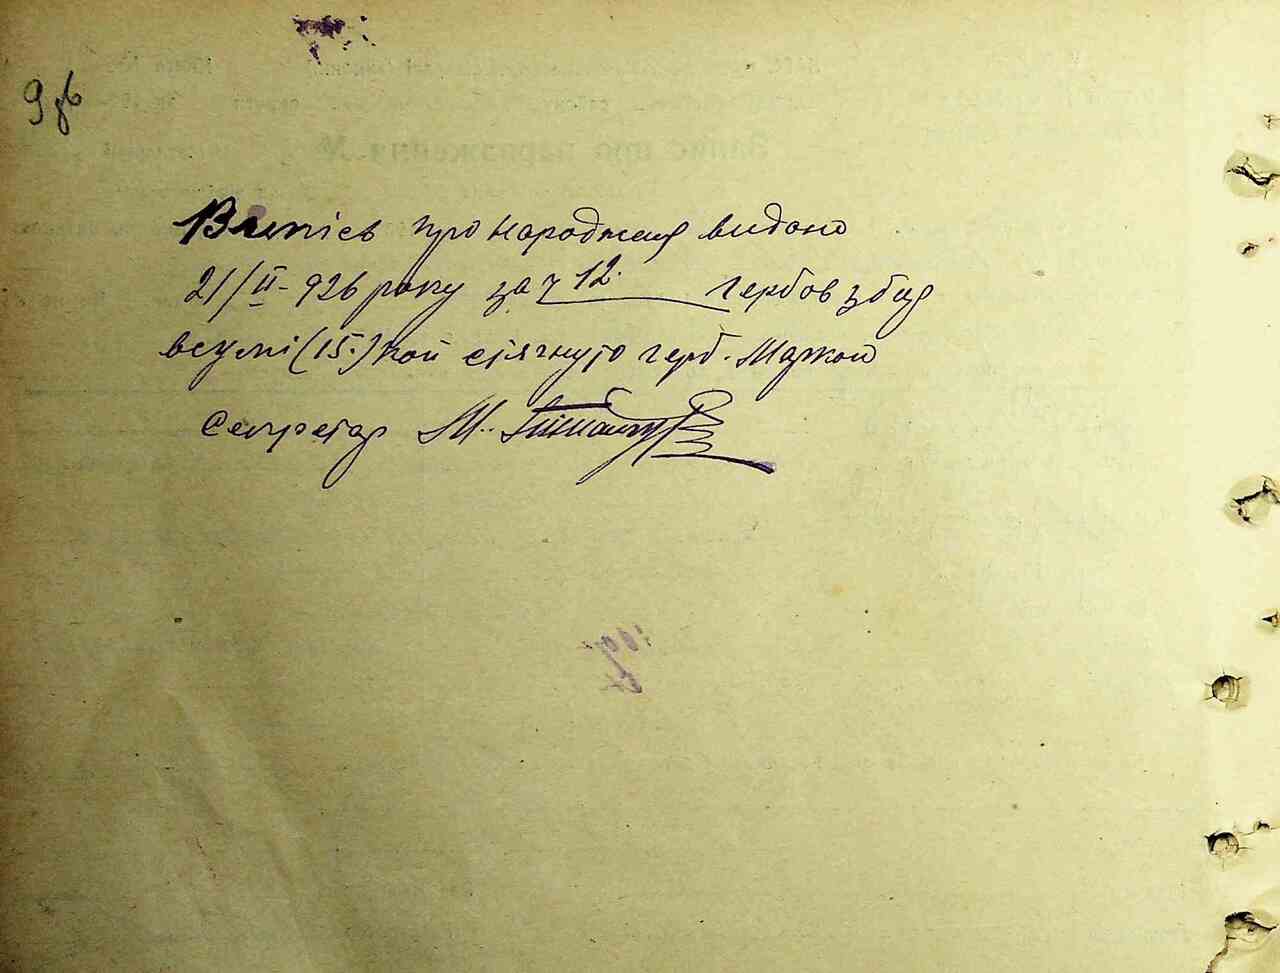 9 зв
Випісь про народження видано
21/II-926 року за ч 12. гербов збор
в сумі (15.) коп стягнуто герб. Маркой
Секретар М.